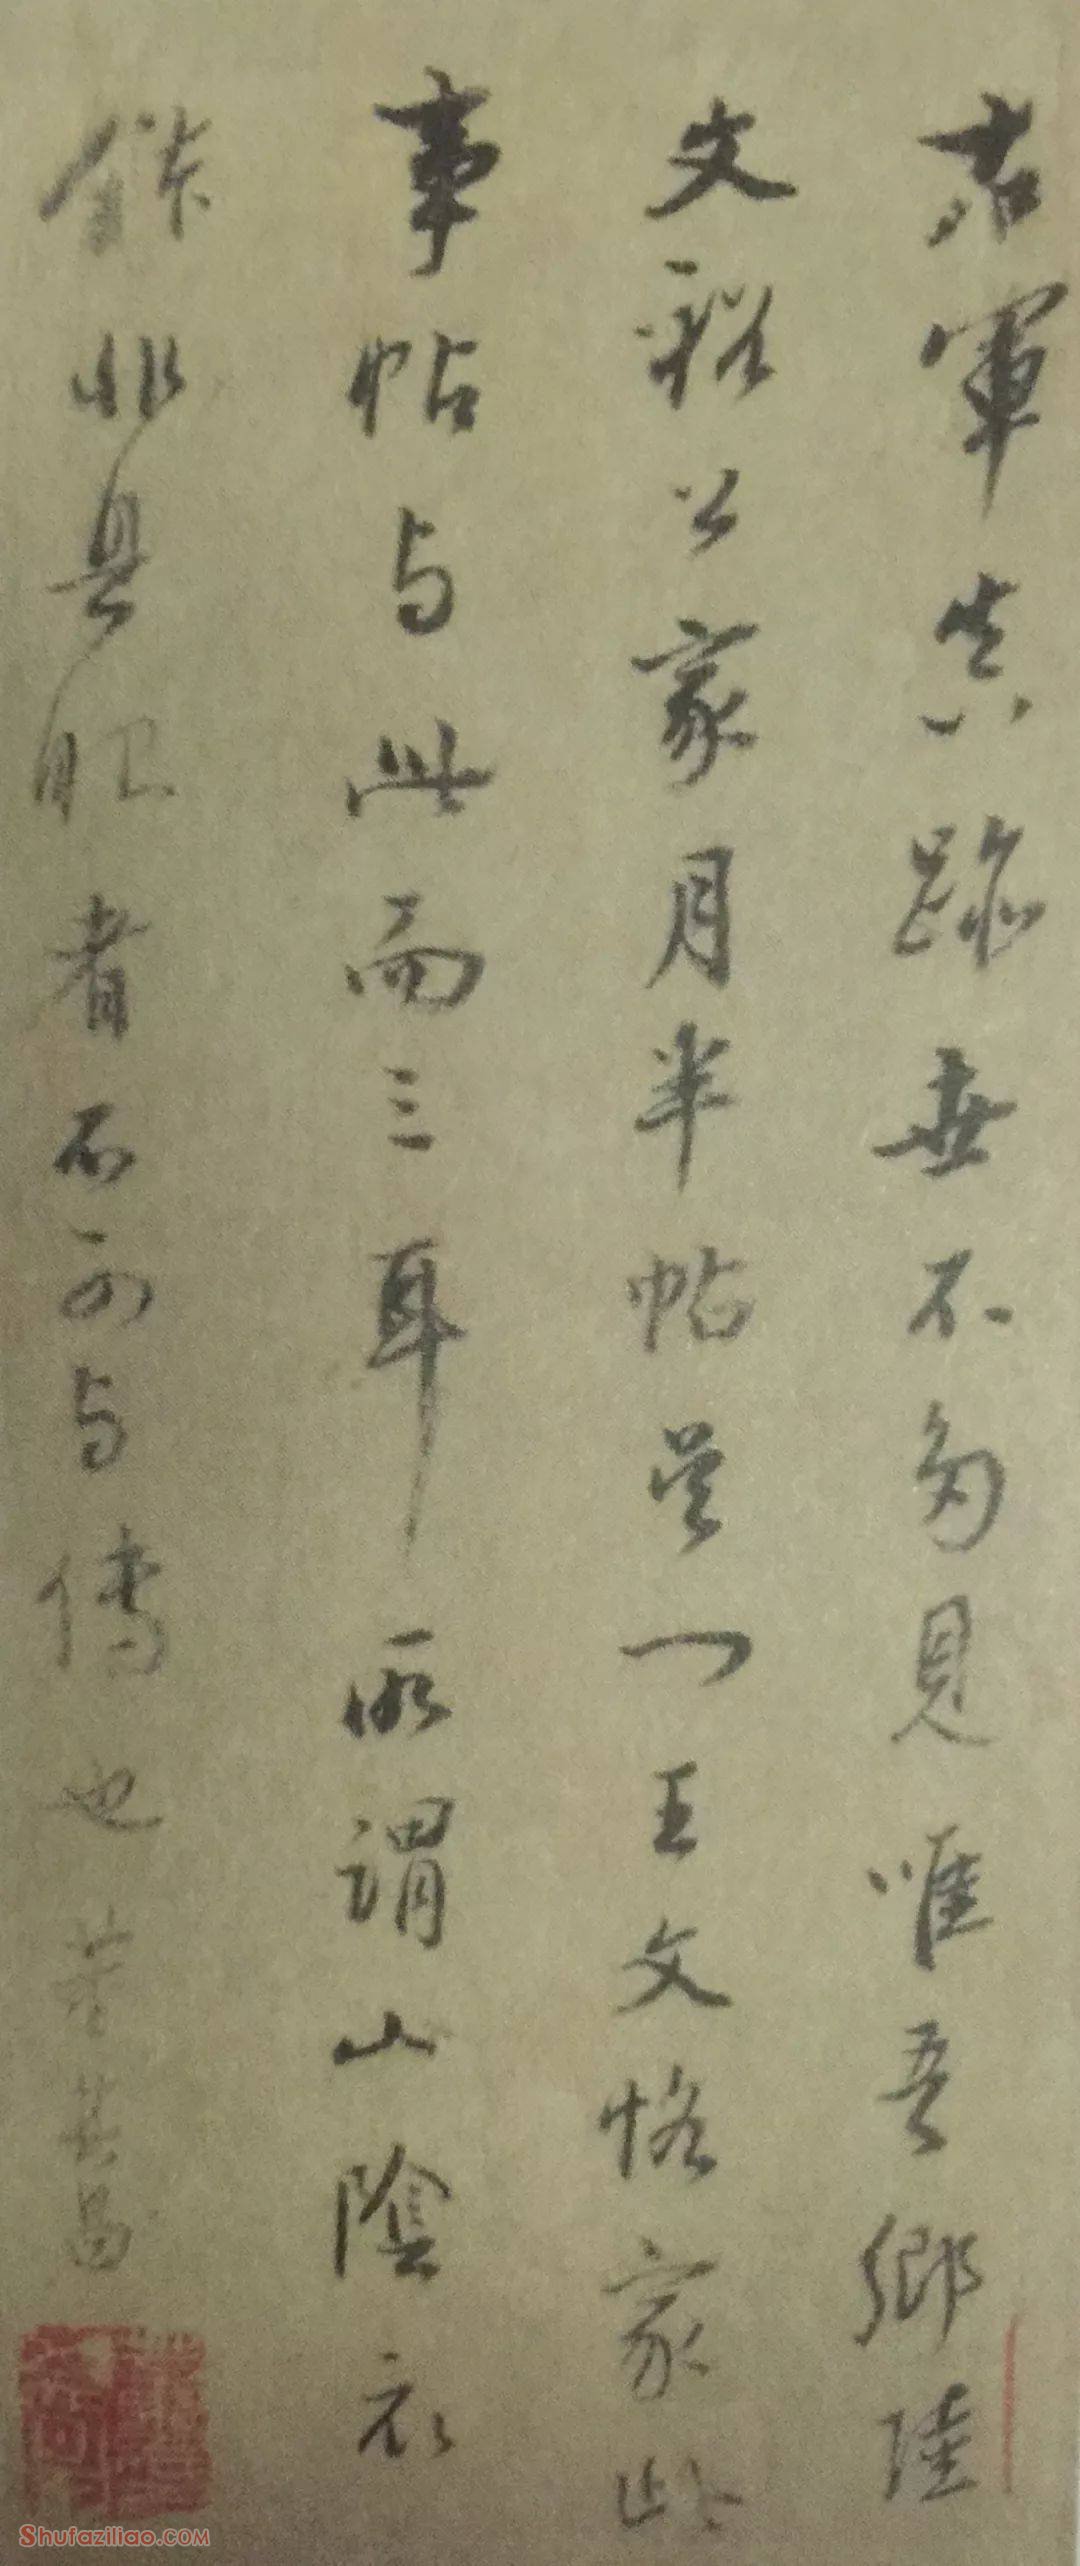 右軍真跡世不多見唯吾鄉陸
文裕公家月半帖吳一王文恪家此
事帖与此而三耳所謂山陰衣
鉢非具眼者不可与傳也董其昌
Shufaziliao.COM